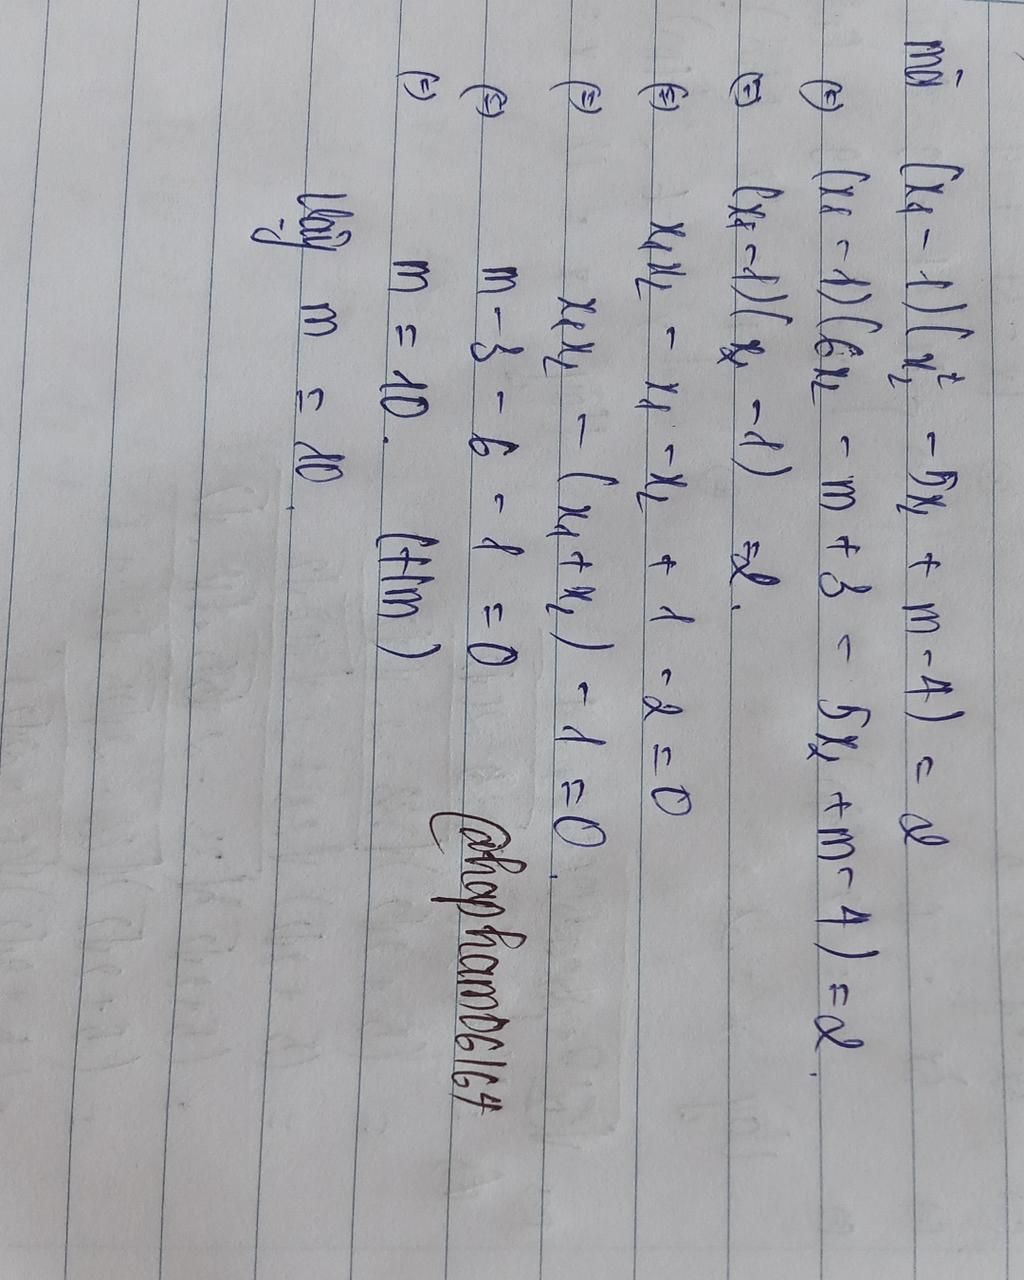 mà (x₁ - 1)(x₂² - 5x₂ + m - 4) = 2
(=) (x₁ - 1)(6x₂ - m + 3 - 5x₂ + m - 4) = 2.
(=) (x₁ - 1)(x₂ - 1) = 2.
(=) x₁x₂ - x₁ - x₂ + 1 - 2 = 0
(=) x₁x₂ - (x₁ + x₂) - 1 = 0.
(=) m - 3 - 6 - 1 = 0
(=) m = 10. (t/m)
Vậy m = 10.
@hopham06164